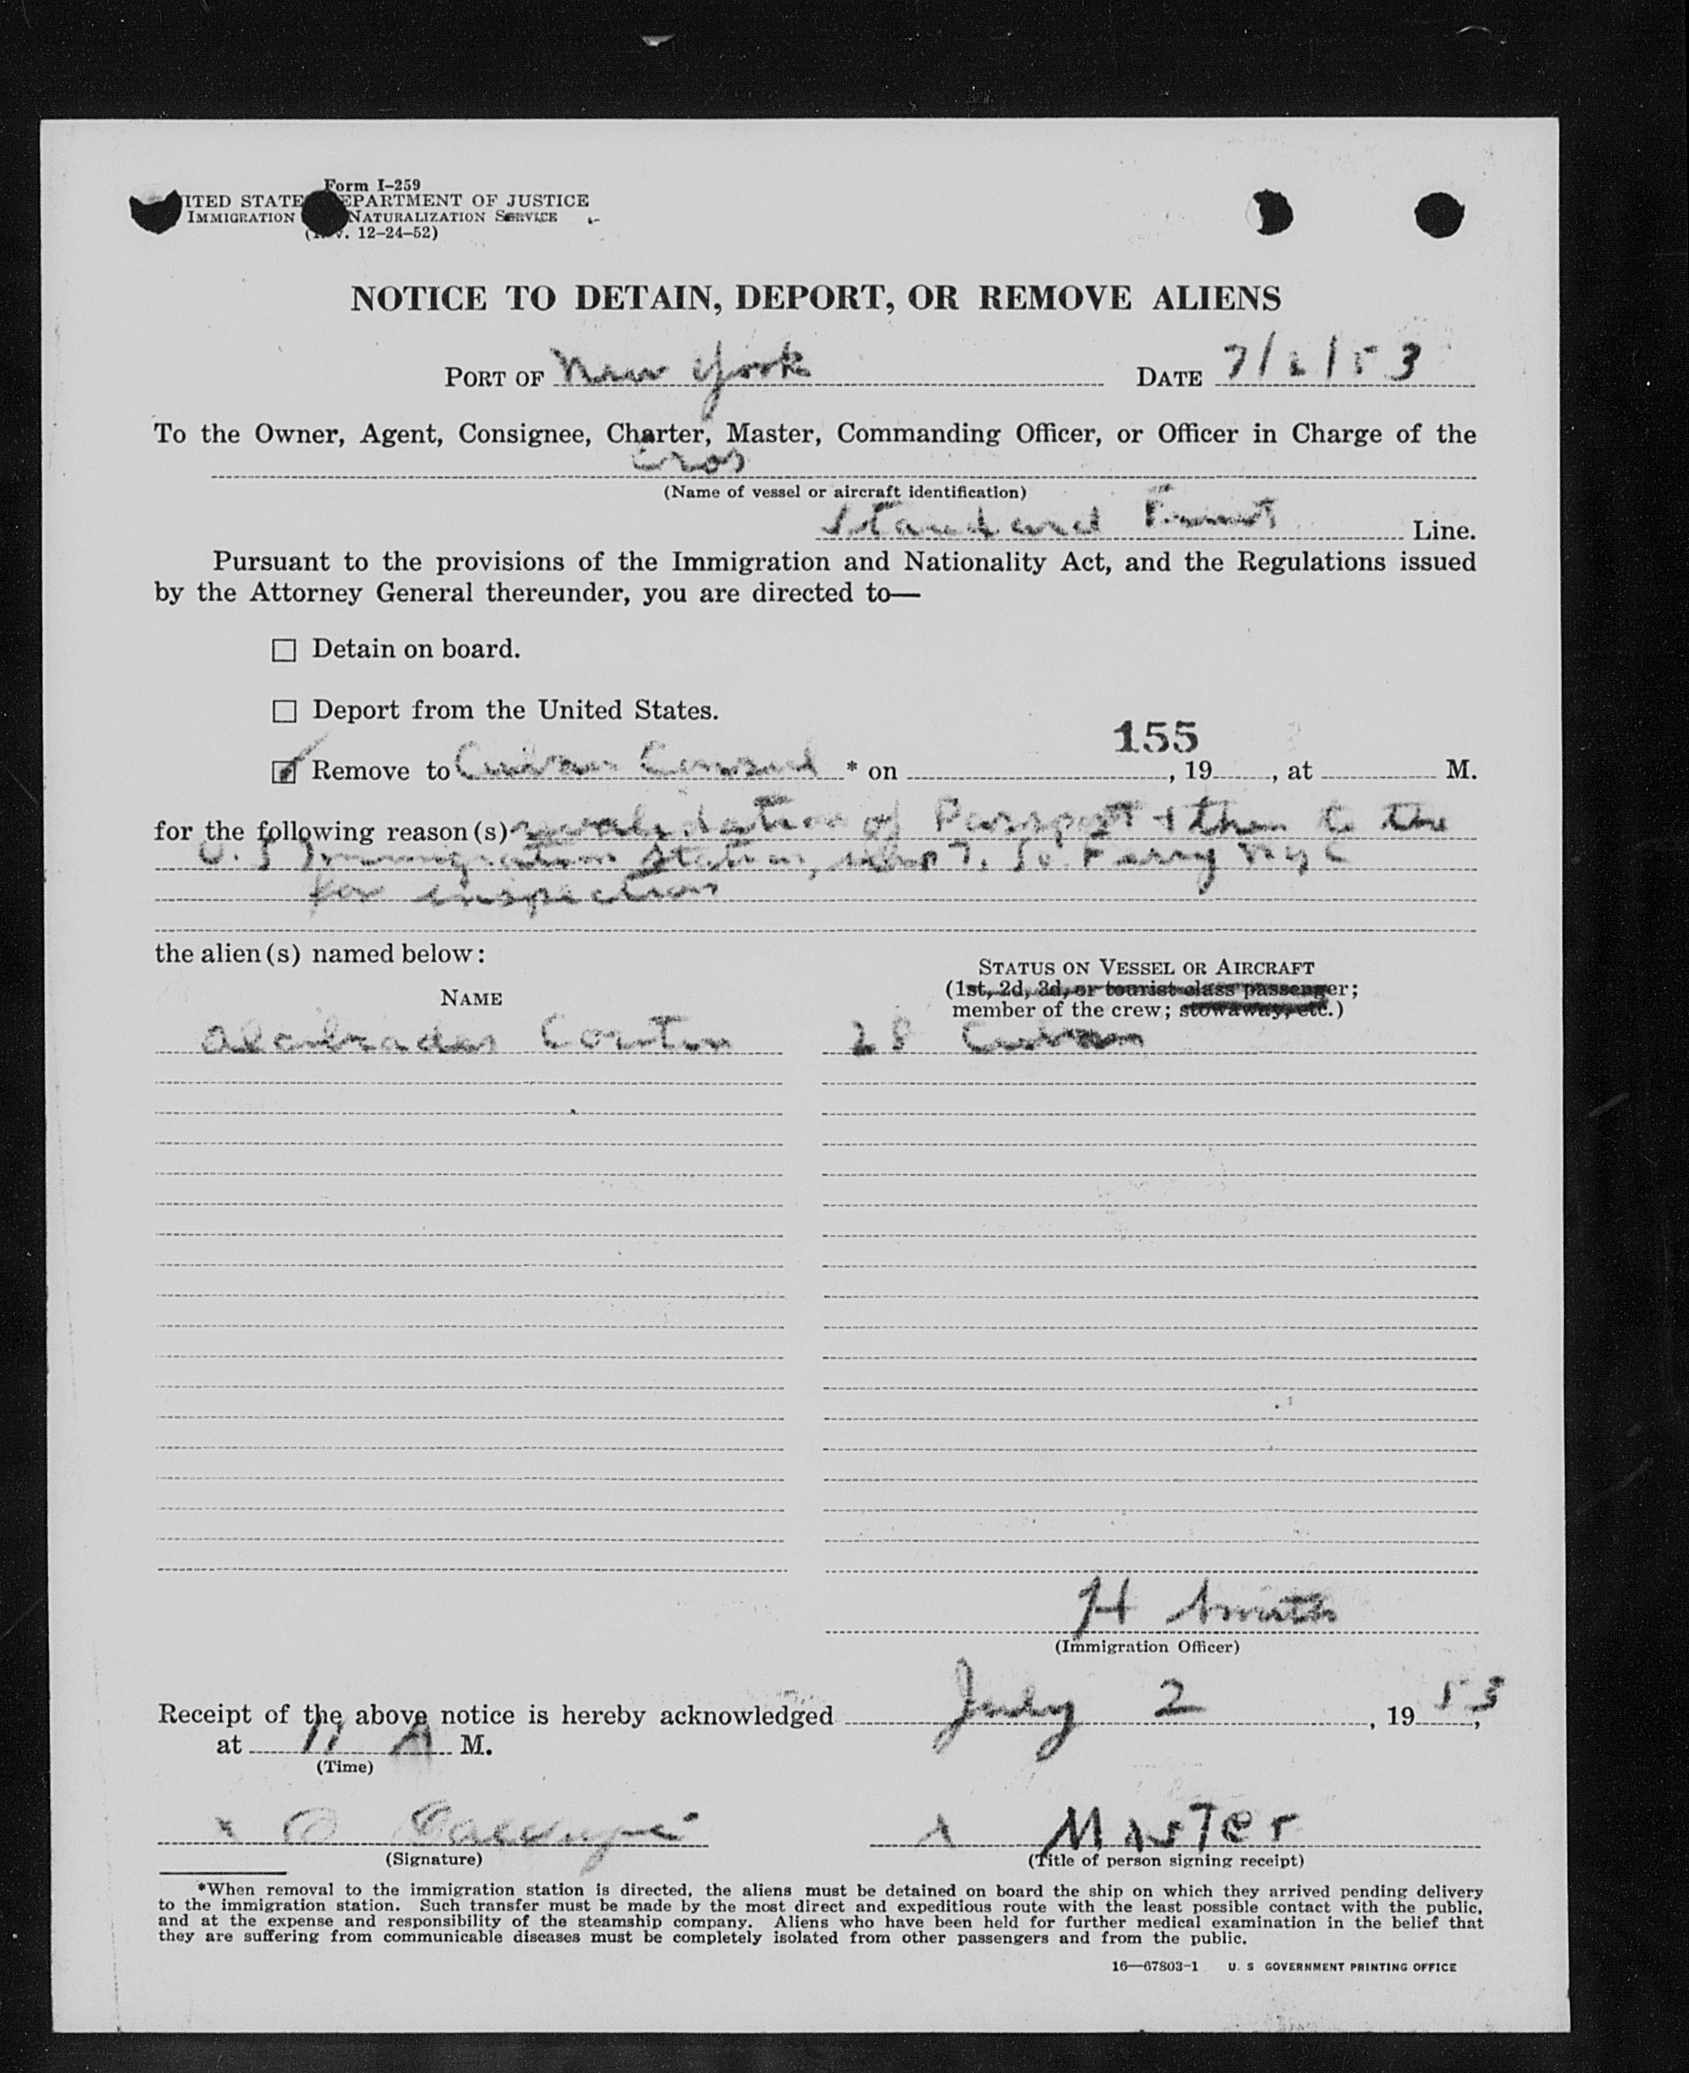 Form I-259
ITED STATE EPARTMENT OF JUSTICE
IMMIGRATION NATURALIZATION SERVICE
12-24-52)
NOTICE TO DETAIN, DEPORT, OR REMOVE ALIENS
PORT OF New York DATE 7/2/53
To the Owner, Agent, Consignee, Charter, Master, Commanding Officer, or Officer in Charge of the
Eros
(Name of vessel or aircraft identification)
Standard Fruit Line.
Pursuant to the provisions of the Immigration and Nationality Act, and the Regulations issued
by the Attorney General thereunder, you are directed to—
☐ Detain on board.
☐ Deport from the United States.
155
☑ Remove to Cuban Consul * on , 19 , at M.
for the following reason(s) revalidation of Passport + then to the
U.S Immigration Station, So. Ferry NYC
for inspection
the alien(s) named below:
STATUS ON VESSEL OR AIRCRAFT
NAME
(1st, 2d, 3d, or tourist class passenger;
member of the crew; stowaway, etc.)
Alcibiades 28 Cuban
H Smith
(Immigration Officer)
Receipt of the above notice is hereby acknowledged July 2, 1953,
at 11 A M.
(Time)
x O Master
(Signature) (Title of person signing receipt)
*When removal to the immigration station is directed, the aliens must be detained on board the ship on which they arrived pending delivery
to the immigration station. Such transfer must be made by the most direct and expeditious route with the least possible contact with the public,
and at the expense and responsibility of the steamship company. Aliens who have been held for further medical examination in the belief that
they are suffering from communicable diseases must be completely isolated from other passengers and from the public.
16—67803-1 U. S GOVERNMENT PRINTING OFFICE